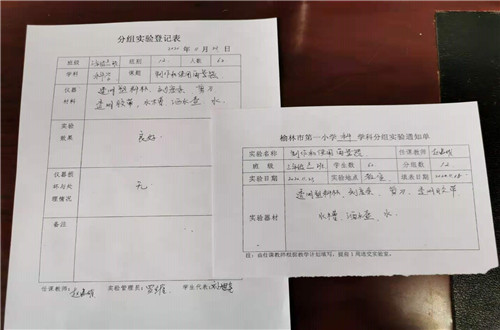 分组实验登记表
2020 年 11 月 日
班级 班 组别 12 人数 60
学科 科学 课题 制作和使用雨量器
仪器材料 透明塑料杯、刻度条、剪刀
透明胶带、水槽、洒水壶、水
实验效果 良好
仪器损坏与处理情况 无
备注
任课教师: 实验管理员: 学生代表:
榆林市第一小学 科 学科分组实验通知单
实验名称 制作和使用雨量器 任课教师
班 级 班 学生数 60 分组数 12
实验日期 实验地点 教室 填表日期
实验器材 透明塑料杯、刻度条、剪刀、透明胶带
水槽、洒水壶、水
注:由任课教师根据教学计划填写,提前1周送交实验室。